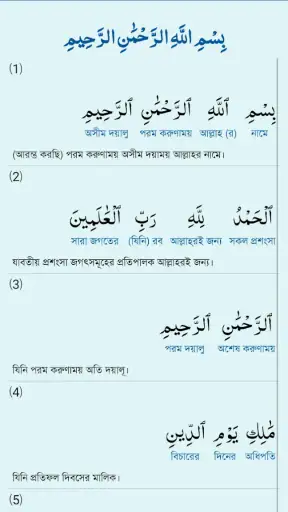 بِسْمِ اللَّهِ الرَّحْمَٰنِ الرَّحِيمِ
(1)
بِسْمِ ٱللَّهِ ٱلرَّحْمَٰنِ ٱلرَّحِيمِ
অসীম দয়ালু পরম করুণাময় আল্লাহ (র) নামে
(আরম্ভ করছি) পরম করুণাময় অসীম দয়াময় আল্লাহর নামে।
(2)
ٱلْحَمْدُ لِلَّهِ رَبِّ ٱلْعَٰلَمِينَ
সারা জগতের (যিনি) রব আল্লাহরই জন্য সকল প্রশংসা
যাবতীয় প্রশংসা জগৎসমূহের প্রতিপালক আল্লাহরই জন্য।
(3)
ٱلرَّحْمَٰنِ ٱلرَّحِيمِ
পরম দয়ালু অশেষ করুণাময়
যিনি পরম করুণাময় অতি দয়ালু।
(4)
مَٰلِكِ يَوْمِ ٱلدِّينِ
বিচারের দিনের অধিপতি
যিনি প্রতিফল দিবসের মালিক।
(5)